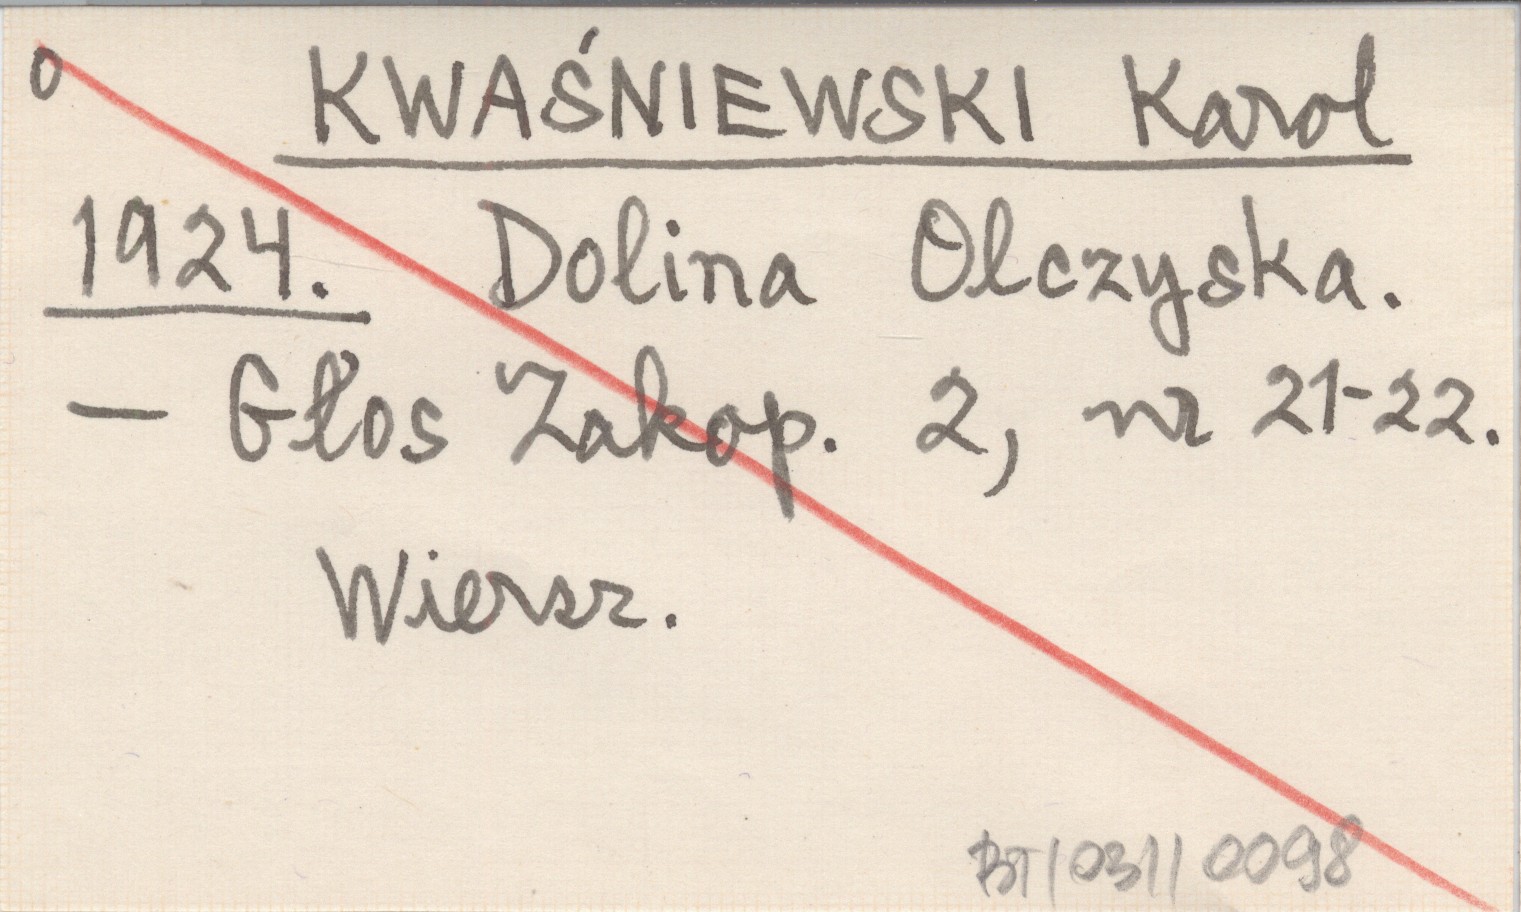 o KWAŚNIEWSKI Karol
1924. Dolina Olczyska.
— Głos Zakop. 2, nr 21-22.
Wiersz.
BT/031/0098